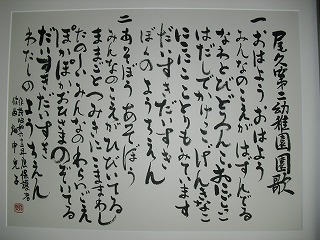 尾久第二幼稚園園歌
一 おはよう おはよう
みんなのこえが はずんでる
なわとび どろんこ おにごっこ
はだしでかけっこ げんきだな
にこにこ ことりも みています
だいすき だいすき
ぼくの ようちえん
二 あそぼう あそぼう
みんなのこえが ひびいてる
ままごと つみき こままわし
たのしい みんなの わらいごえ
ぽかぽか おひさま のぞいてる
だいすき だいすき
わたしの ようちえん